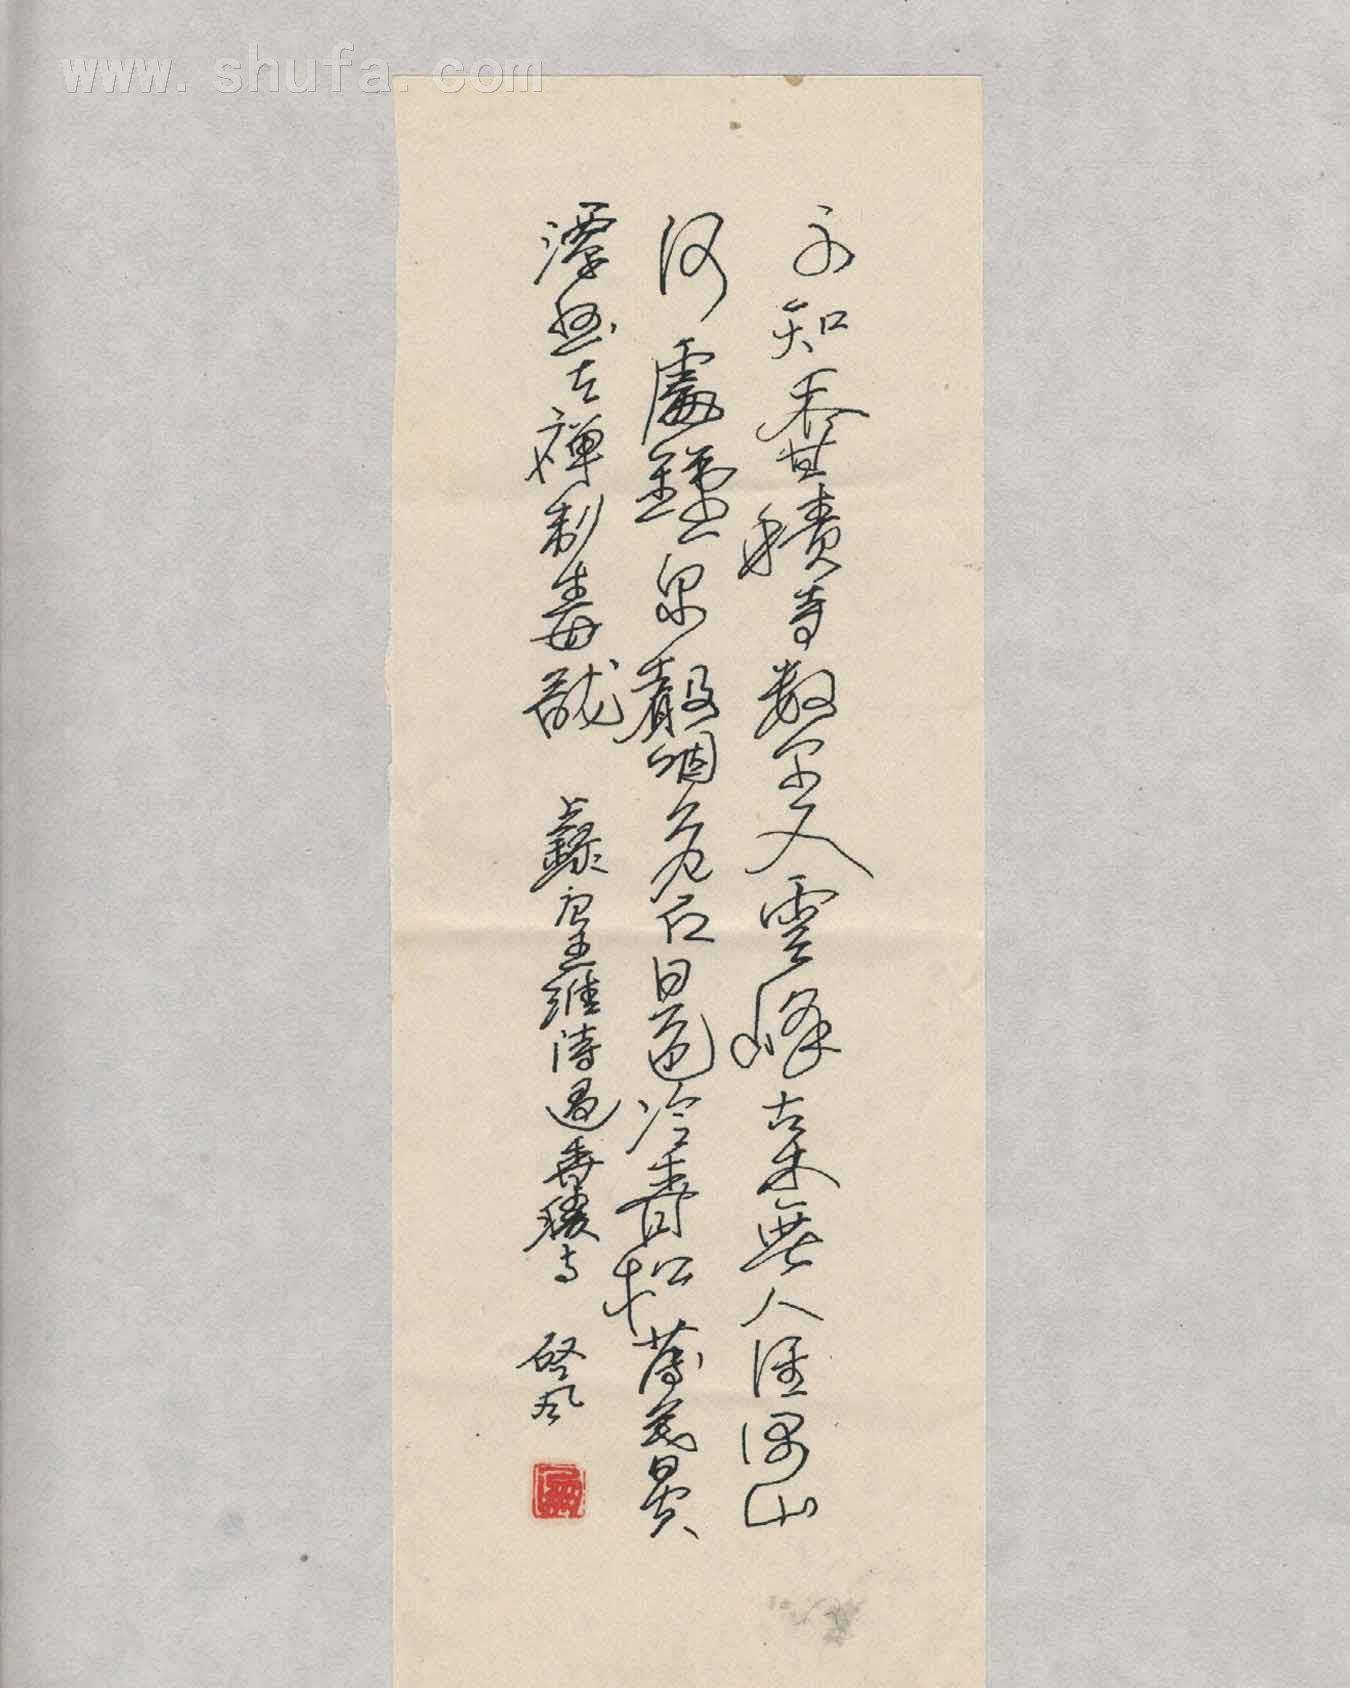 www.shufa.com
不知香積寺數里入雲峰古木無人徑深山
何處鐘泉聲咽危石日色冷青松薄暮空
潭曲安禪制毒龍 錄唐王維詩過香積寺